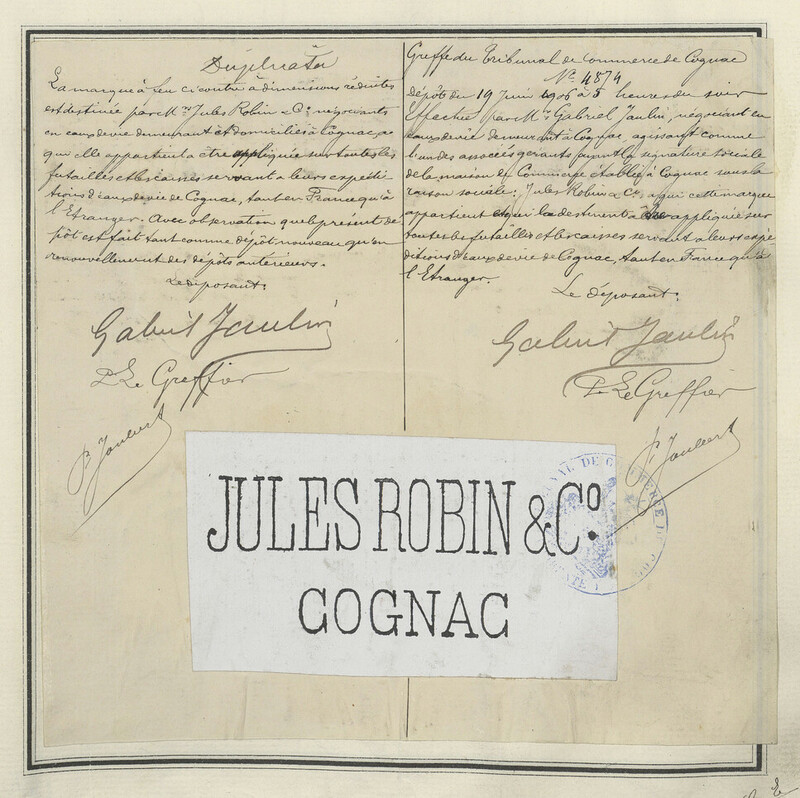 Duplicata
La marque à feu ci contre à dimensions réduites
est destinée par MM. Jules Robin & Co. négociants
en eaux de vie demeurant et domiciliés à Cognac, à
qui elle appartient à être appliquée sur toutes les
futailles et les caisses servant à leurs expédi
tions d'eaux de vie de Cognac, tant en France qu'à
l'Etranger. Avec observation que le présent dé
pôt est fait tant comme dépôt nouveau qu'en
renouvellement des dépôts antérieurs.
Le déposant.
Gabriel Jaulin
P. Le Greffier
P. Joubert
Greffe du Tribunal de Commerce de Cognac
No. 4874
Dépôt du 19 Juin 1906 à 5 heures du soir
Effectué par M. Gabriel Jaulin, négociant en
eaux de vie demeurant à Cognac, agissant comme
l'un des associés gérants ayant la signature sociale
de la maison de Commerce établie à Cognac sous la
raison sociale: Jules Robin & Co. à qui cette marque
appartient et qui la destinent à être appliquée sur
toutes les futailles et les caisses servant à leurs expé
ditions d'eaux de vie de Cognac, tant en France qu'à
l'Etranger.
Le déposant.
Gabriel Jaulin
P. Le Greffier
P. Joubert
JULES ROBIN & Co.
COGNAC